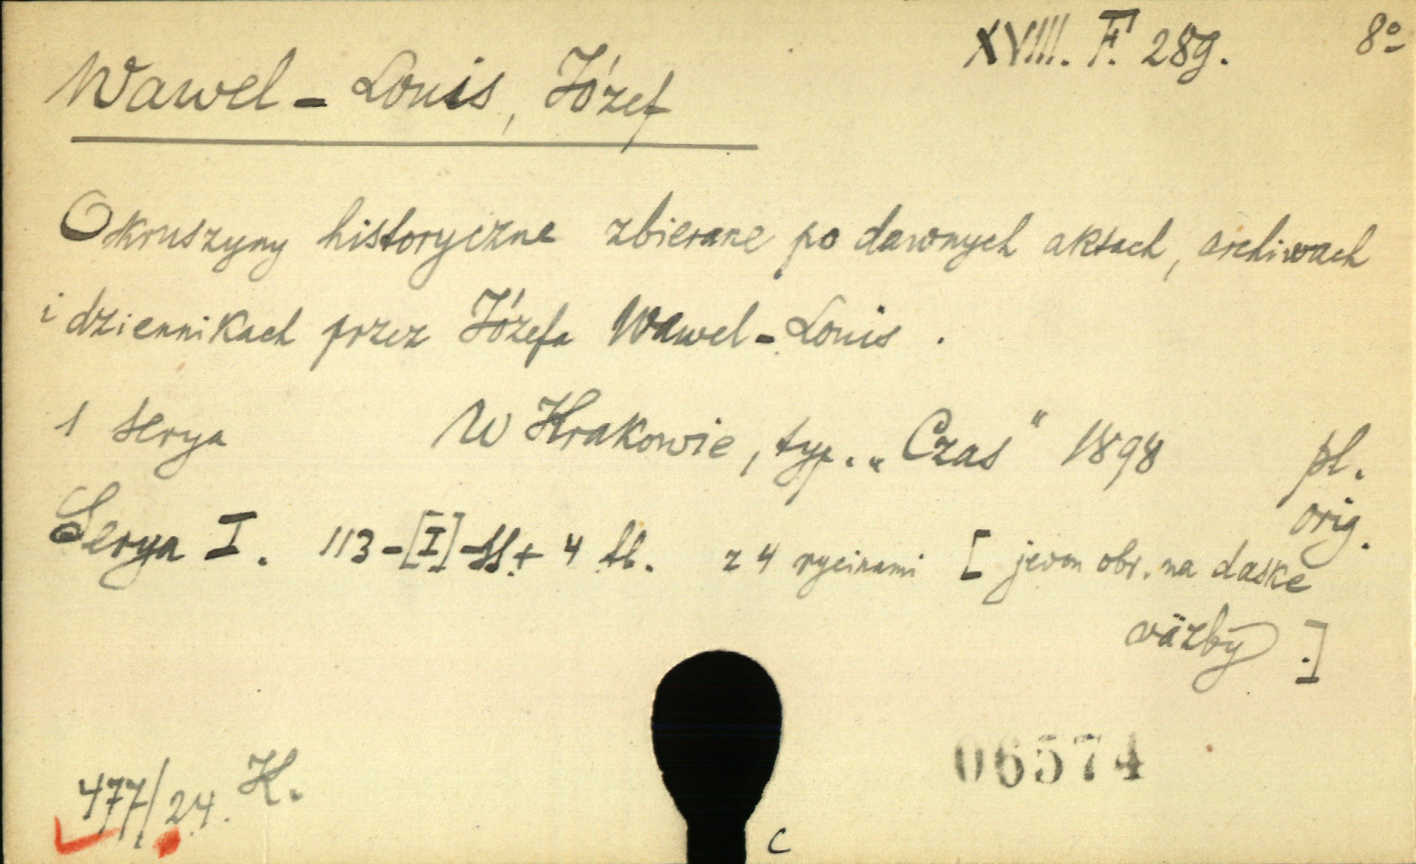 XVIII. F. 289. 8º
Wawel - Louis, Józef
Okruszyny historyczne zbierane po dawnych aktach, archiwach
i dziennikach przez Józefa Wawel - Louis.
1 serya W Krakowie, typ. „Czas" 1898 pl.
orig.
Serya I. 113-[I]-SS+ 4 ll. z 4 rycinami [ jeden obr. na daske
väzby .]
477/24. K.
06574
C